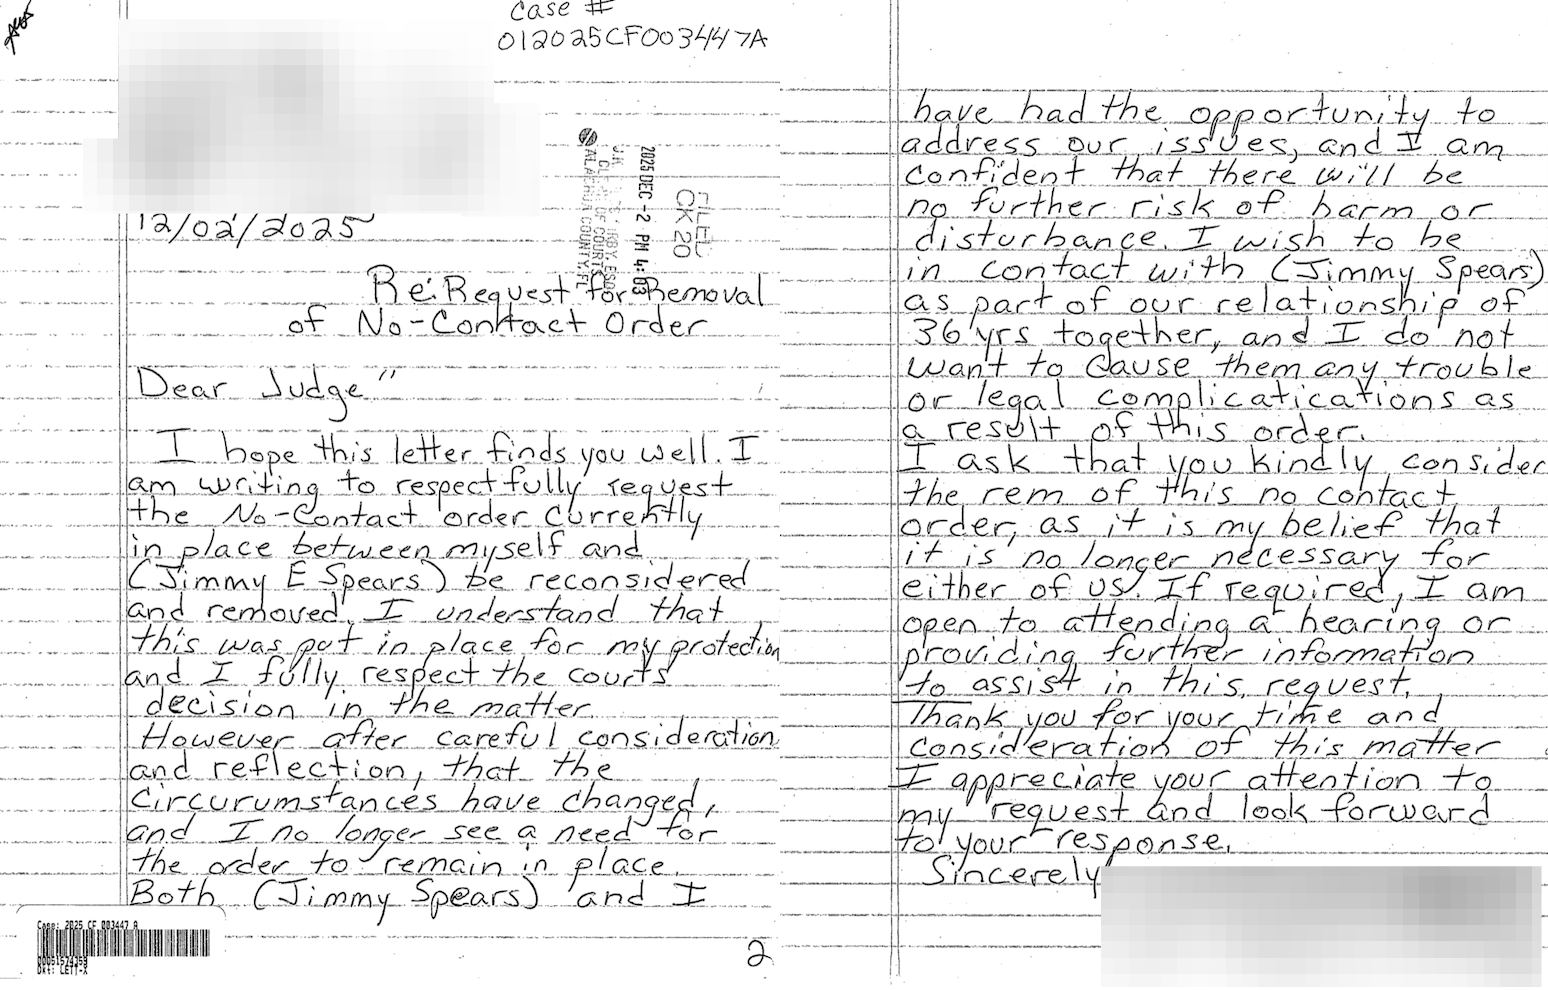 Case #
012025CF003447A
FILED
CK 20
2025 DEC -2 PM 4: 03
J.K. IRBY, ESQ.
CLERK OF COURTS
ALACHUA COUNTY, FL
12/02/2025
Re: Request for Removal
of No-Conttact Order
Dear Judge"
I hope this letter finds you well. I
am writing to respectfully request
the No-Contact order currently
in place between myself and
(Jimmy E Spears) be reconsidered
and removed. I understand that
this was put in place for my protection
and I fully respect the courts
decision in the matter.
However after careful consideration
and reflection, that the
circurumstances have changed,
and I no longer see a need for
the order to remain in place.
Both (Jimmy Spears) and I
Case: 2025 CF 003447 A
Dkt: LETT-X
2
have had the opportunity to
address our issues, and I am
confident that there will be
no further risk of harm or
disturbance. I wish to be
in contact with (Jimmy Spears)
as part of our relationship of
36 yrs together, and I do not
want to cause them any trouble
or legal complicatications as
a result of this order.
I ask that you kindly consider
the rem of this no contact
order, as it is my belief that
it is no longer necessary for
either of us. If required, I am
open to attending a hearing or
providing further information
to assist in this request.
Thank you for your time and
consideration of this matter
I appreciate your attention to
my request and look forward
to your response.
Sincerely